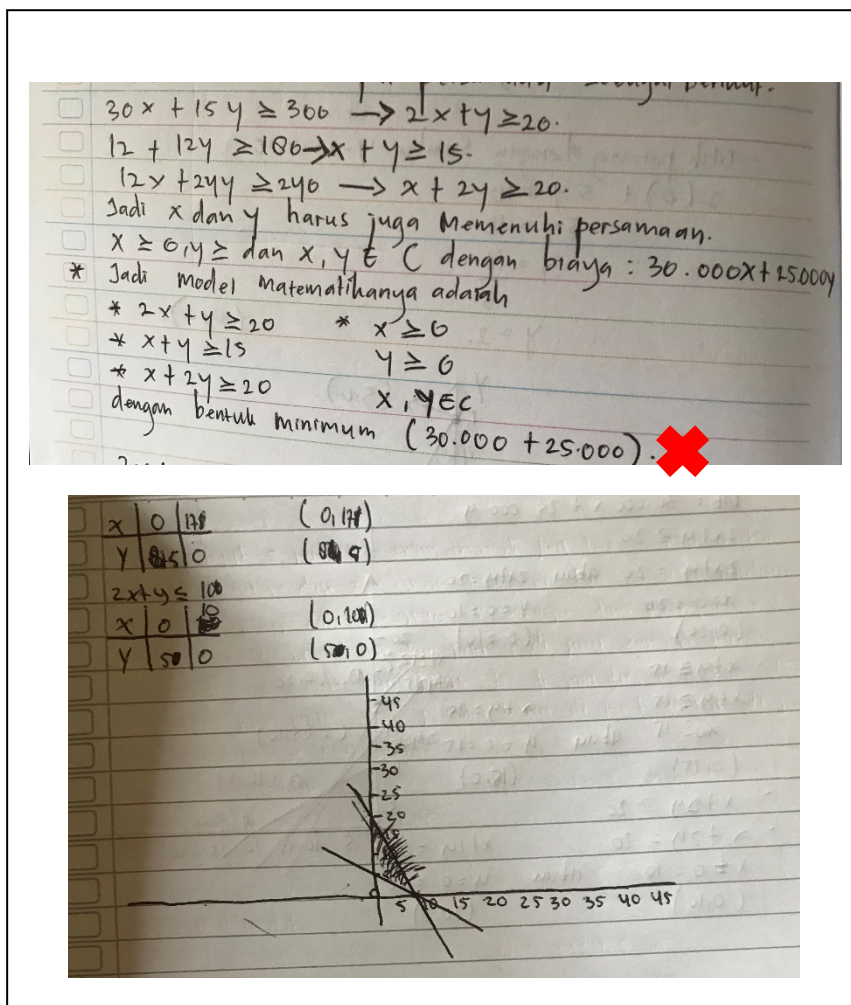 sebagai berikut.
30x + 15y ≥ 300 → 2x+y ≥ 20.
12 + 12y ≥ 180 → x + y ≥ 15.
12x + 24y ≥ 240 → x + 2y ≥ 20.
Jadi x dan y harus juga Memenuhi persamaan.
x ≥ 0, y ≥ dan x, y ∈ C dengan biaya : 30.000x + 25.000y
* Jadi model matematikanya adalah
* 2x + y ≥ 20 * x ≥ 0
* x + y ≥ 15 y ≥ 0
* x + 2y ≥ 20 x, y ∈ C
dengan bentuk minimum (30.000 + 25.000).
x 0
y 0
2x+y ≤ 100
x 0 10 (0,100)
y 50 0 (50,0)
45
40
35
30
25
20
0 5 10 15 20 25 30 35 40 45